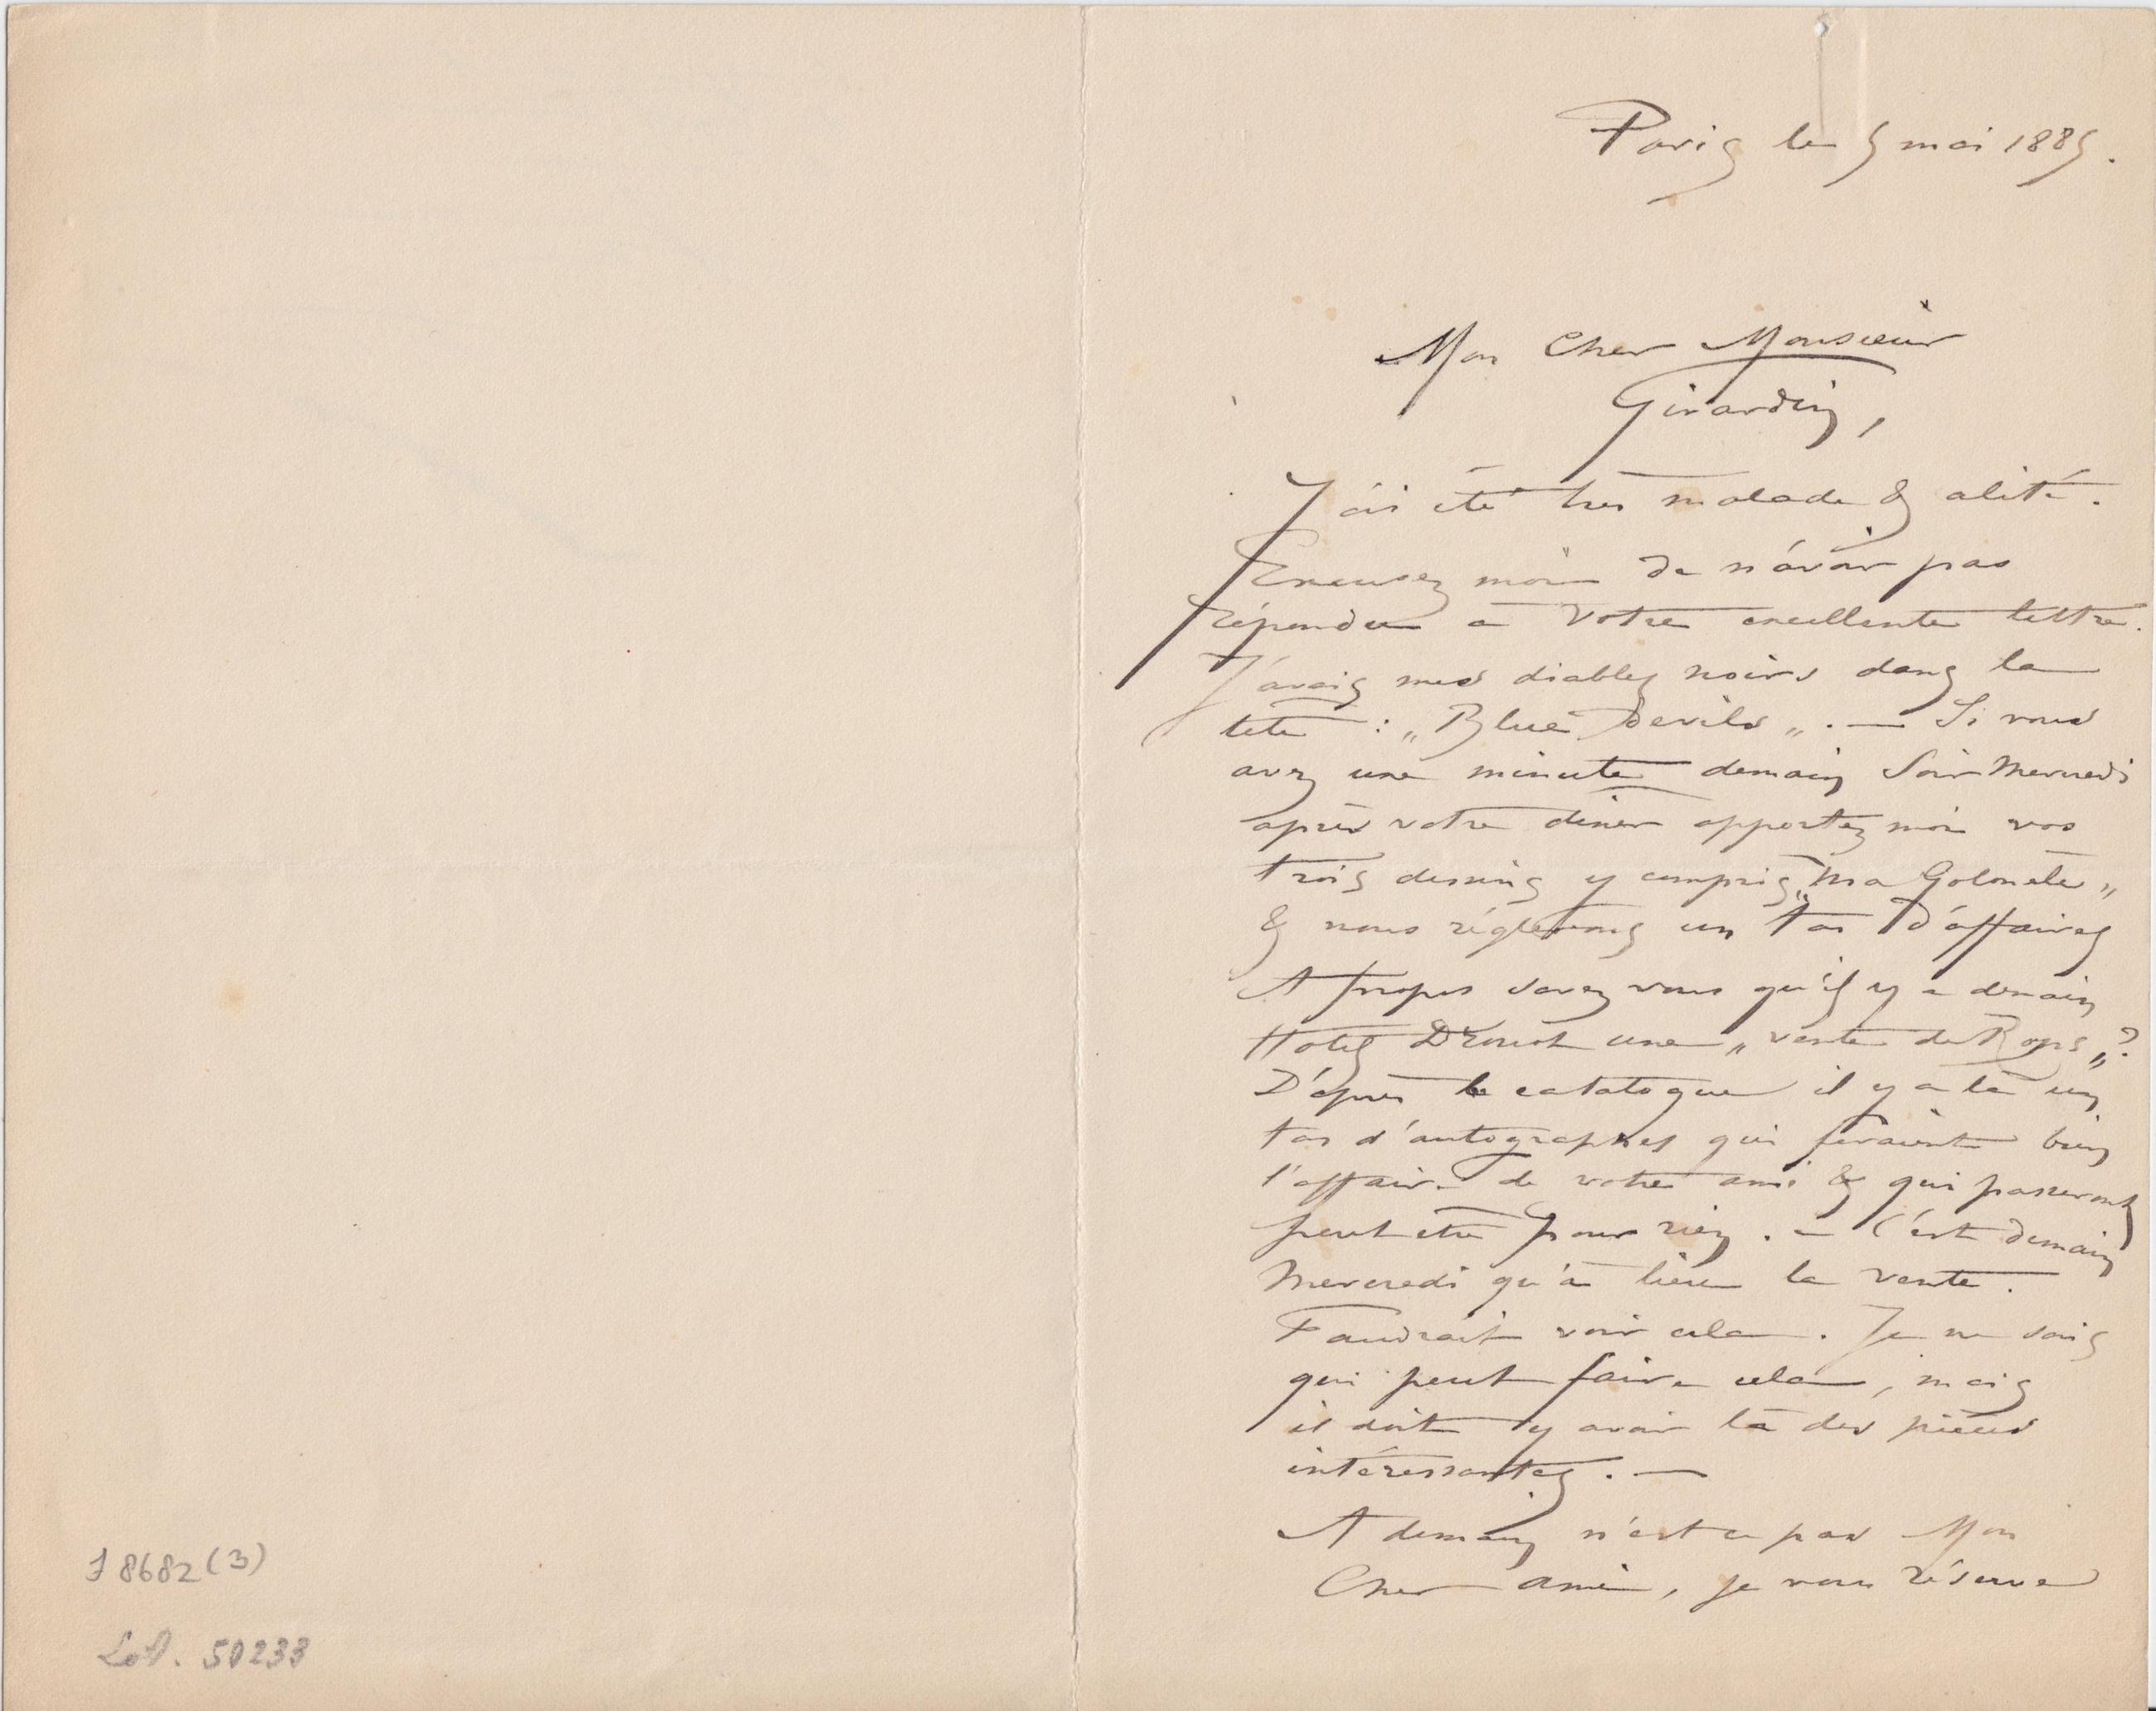 Paris le 5 mai 1885.
Mon Cher Monsieur
Girardin,
J'ai été très malade & alité.
Excusez moi de n'avoir pas
répondu à votre excellente lettre.
J'avais mes diables noirs dans la
tête : „Blue Devils„. — Si vous
avez une minute demain Soir Mercredi
après votre diner apportez moi vos
trois dessins y compris „Ma
& nous règlerons un tas d'affaires
A propos savez vous qu'il y a demain
Hotel Drouot une „vente de Rops„?
D'après le catalogue il y a là un
tas d'autographes qui feraient bien
l'affaire de votre ami & qui passeront
peut etre pour rien. — C'est demain
Mercredi qu'a lieu la vente.
Faudrait voir cela. Je ne sais
qui peut faire cela, mais
il doit y avoir là des pièces
intéressantes. —
A demain n'est ce pas Mon
Cher ami, je vous réserve
J 8682 (3)
50233